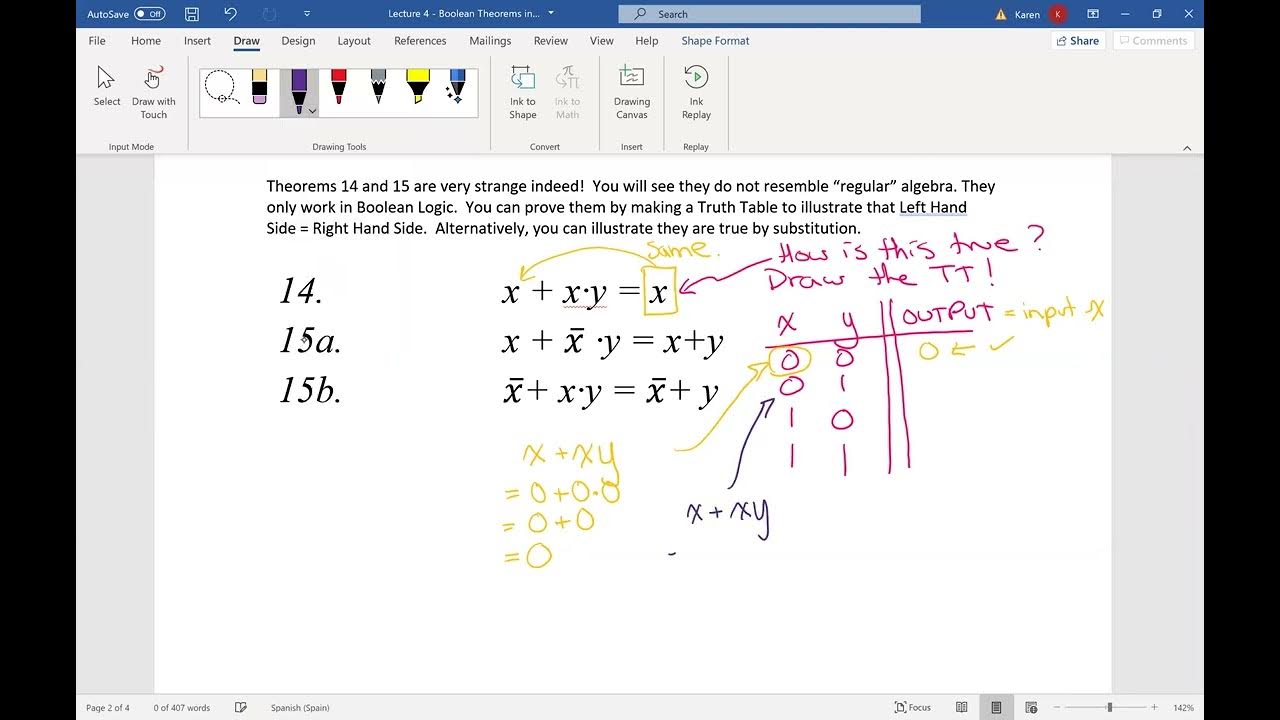 AutoSave Off Lecture 4 - Boolean Theorems in... Search Karen K
File Home Insert Draw Design Layout References Mailings Review View Help Shape Format Share Comments
Select Draw with Touch Ink to Shape Ink to Math Drawing Canvas Ink Replay
Input Mode Drawing Tools Convert Insert Replay
Theorems 14 and 15 are very strange indeed! You will see they do not resemble “regular” algebra. They
only work in Boolean Logic. You can prove them by making a Truth Table to illustrate that Left Hand
Side = Right Hand Side. Alternatively, you can illustrate they are true by substitution.
Same.
How is this true?
Draw the TT!
14. x + x·y = x
15a. x + x̄ ·y = x+y
15b. x̄+ x·y = x̄+ y
x y OUTPUT = input x
0 0 0 ← ✓
0 1
1 0
1 1
x + xy
= 0 + 0·0
= 0 + 0
= 0
x + xy
-
Page 2 of 4 0 of 407 words Spanish (Spain) Focus 142%